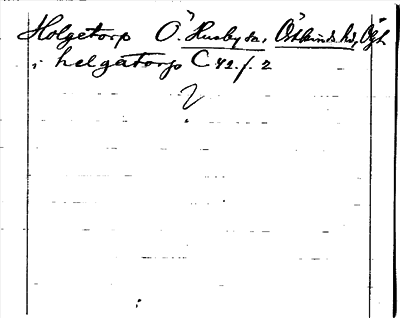 Holgetorp Ö. Husby sn, Östkinds hd, Ögl
i helgatorp C 42. f. 2
?